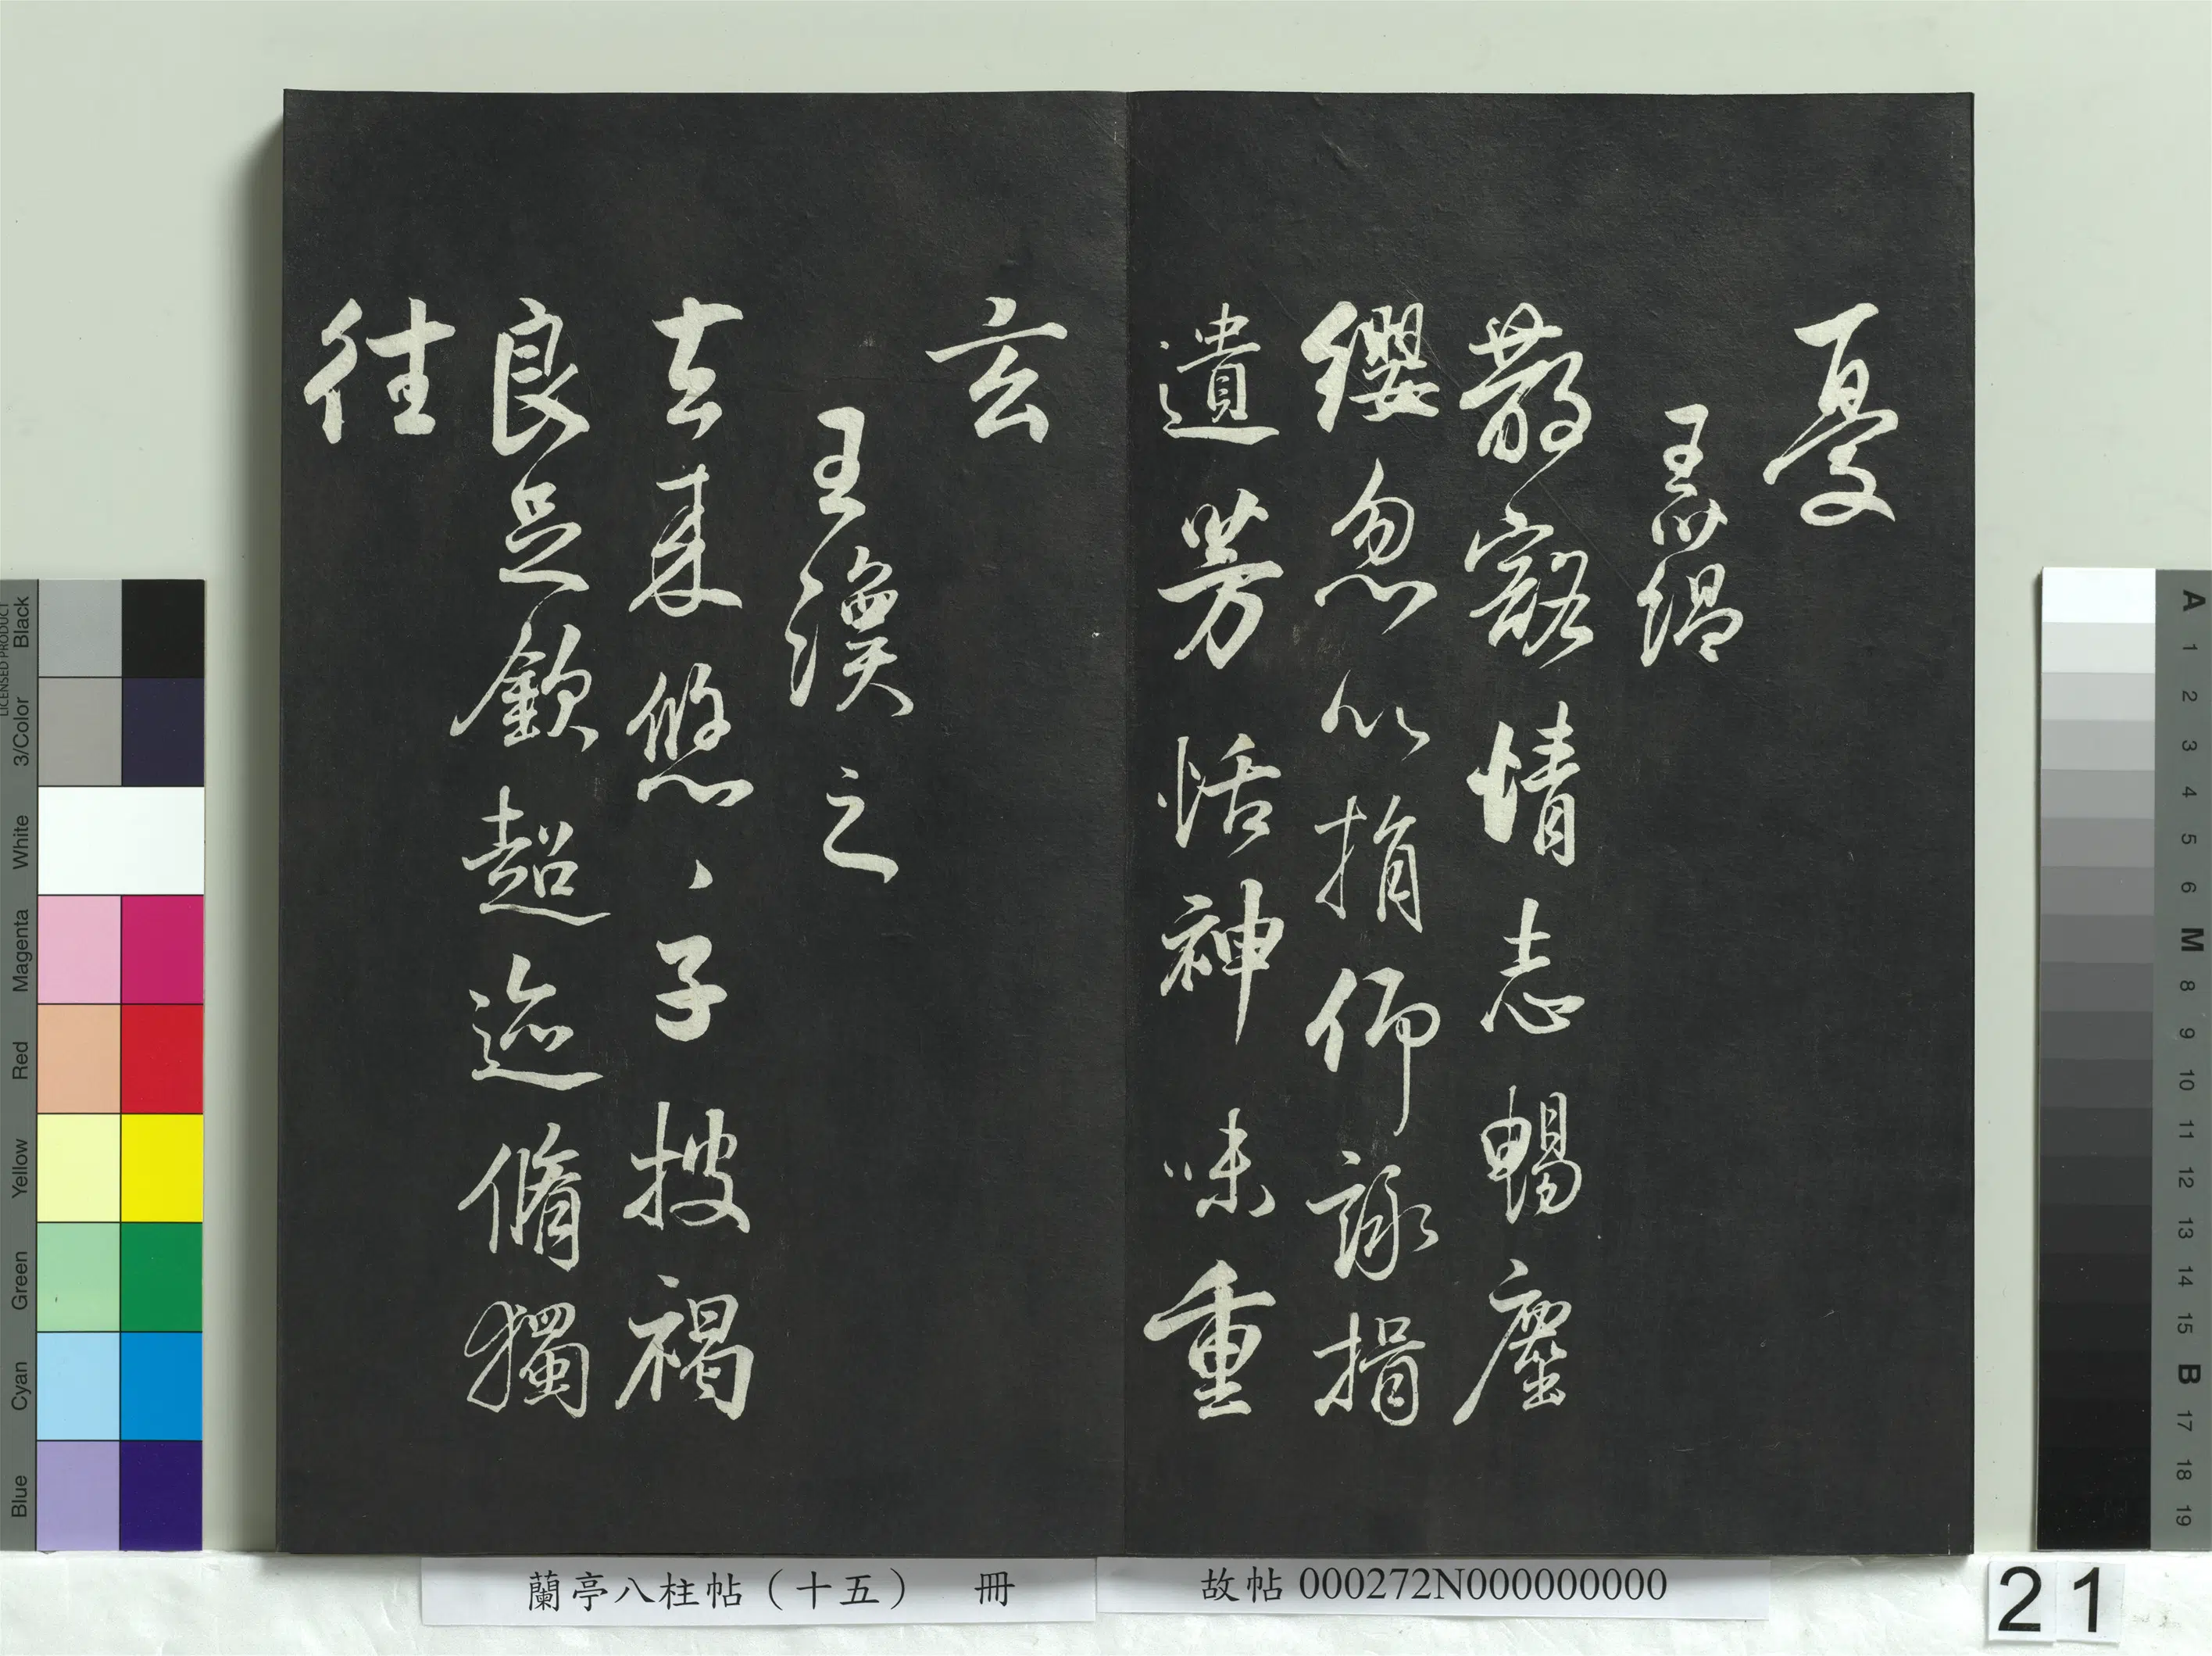 憂
王蘊
散豁情志暢塵
纓忽以捐仰詠揖
遺芳恬神味重
玄
王渙之
去来悠〻子披褐
良足欽超迹脩獨
往
蘭亭八柱帖（十五） 冊
故帖 000272N000000000
21
LICENSED PRODUCT
Black
3/Color
White
Magenta
Red
Yellow
Green
Cyan
Blue
A
1
2
3
4
5
6
M
8
9
10
11
12
13
14
15
B
17
18
19